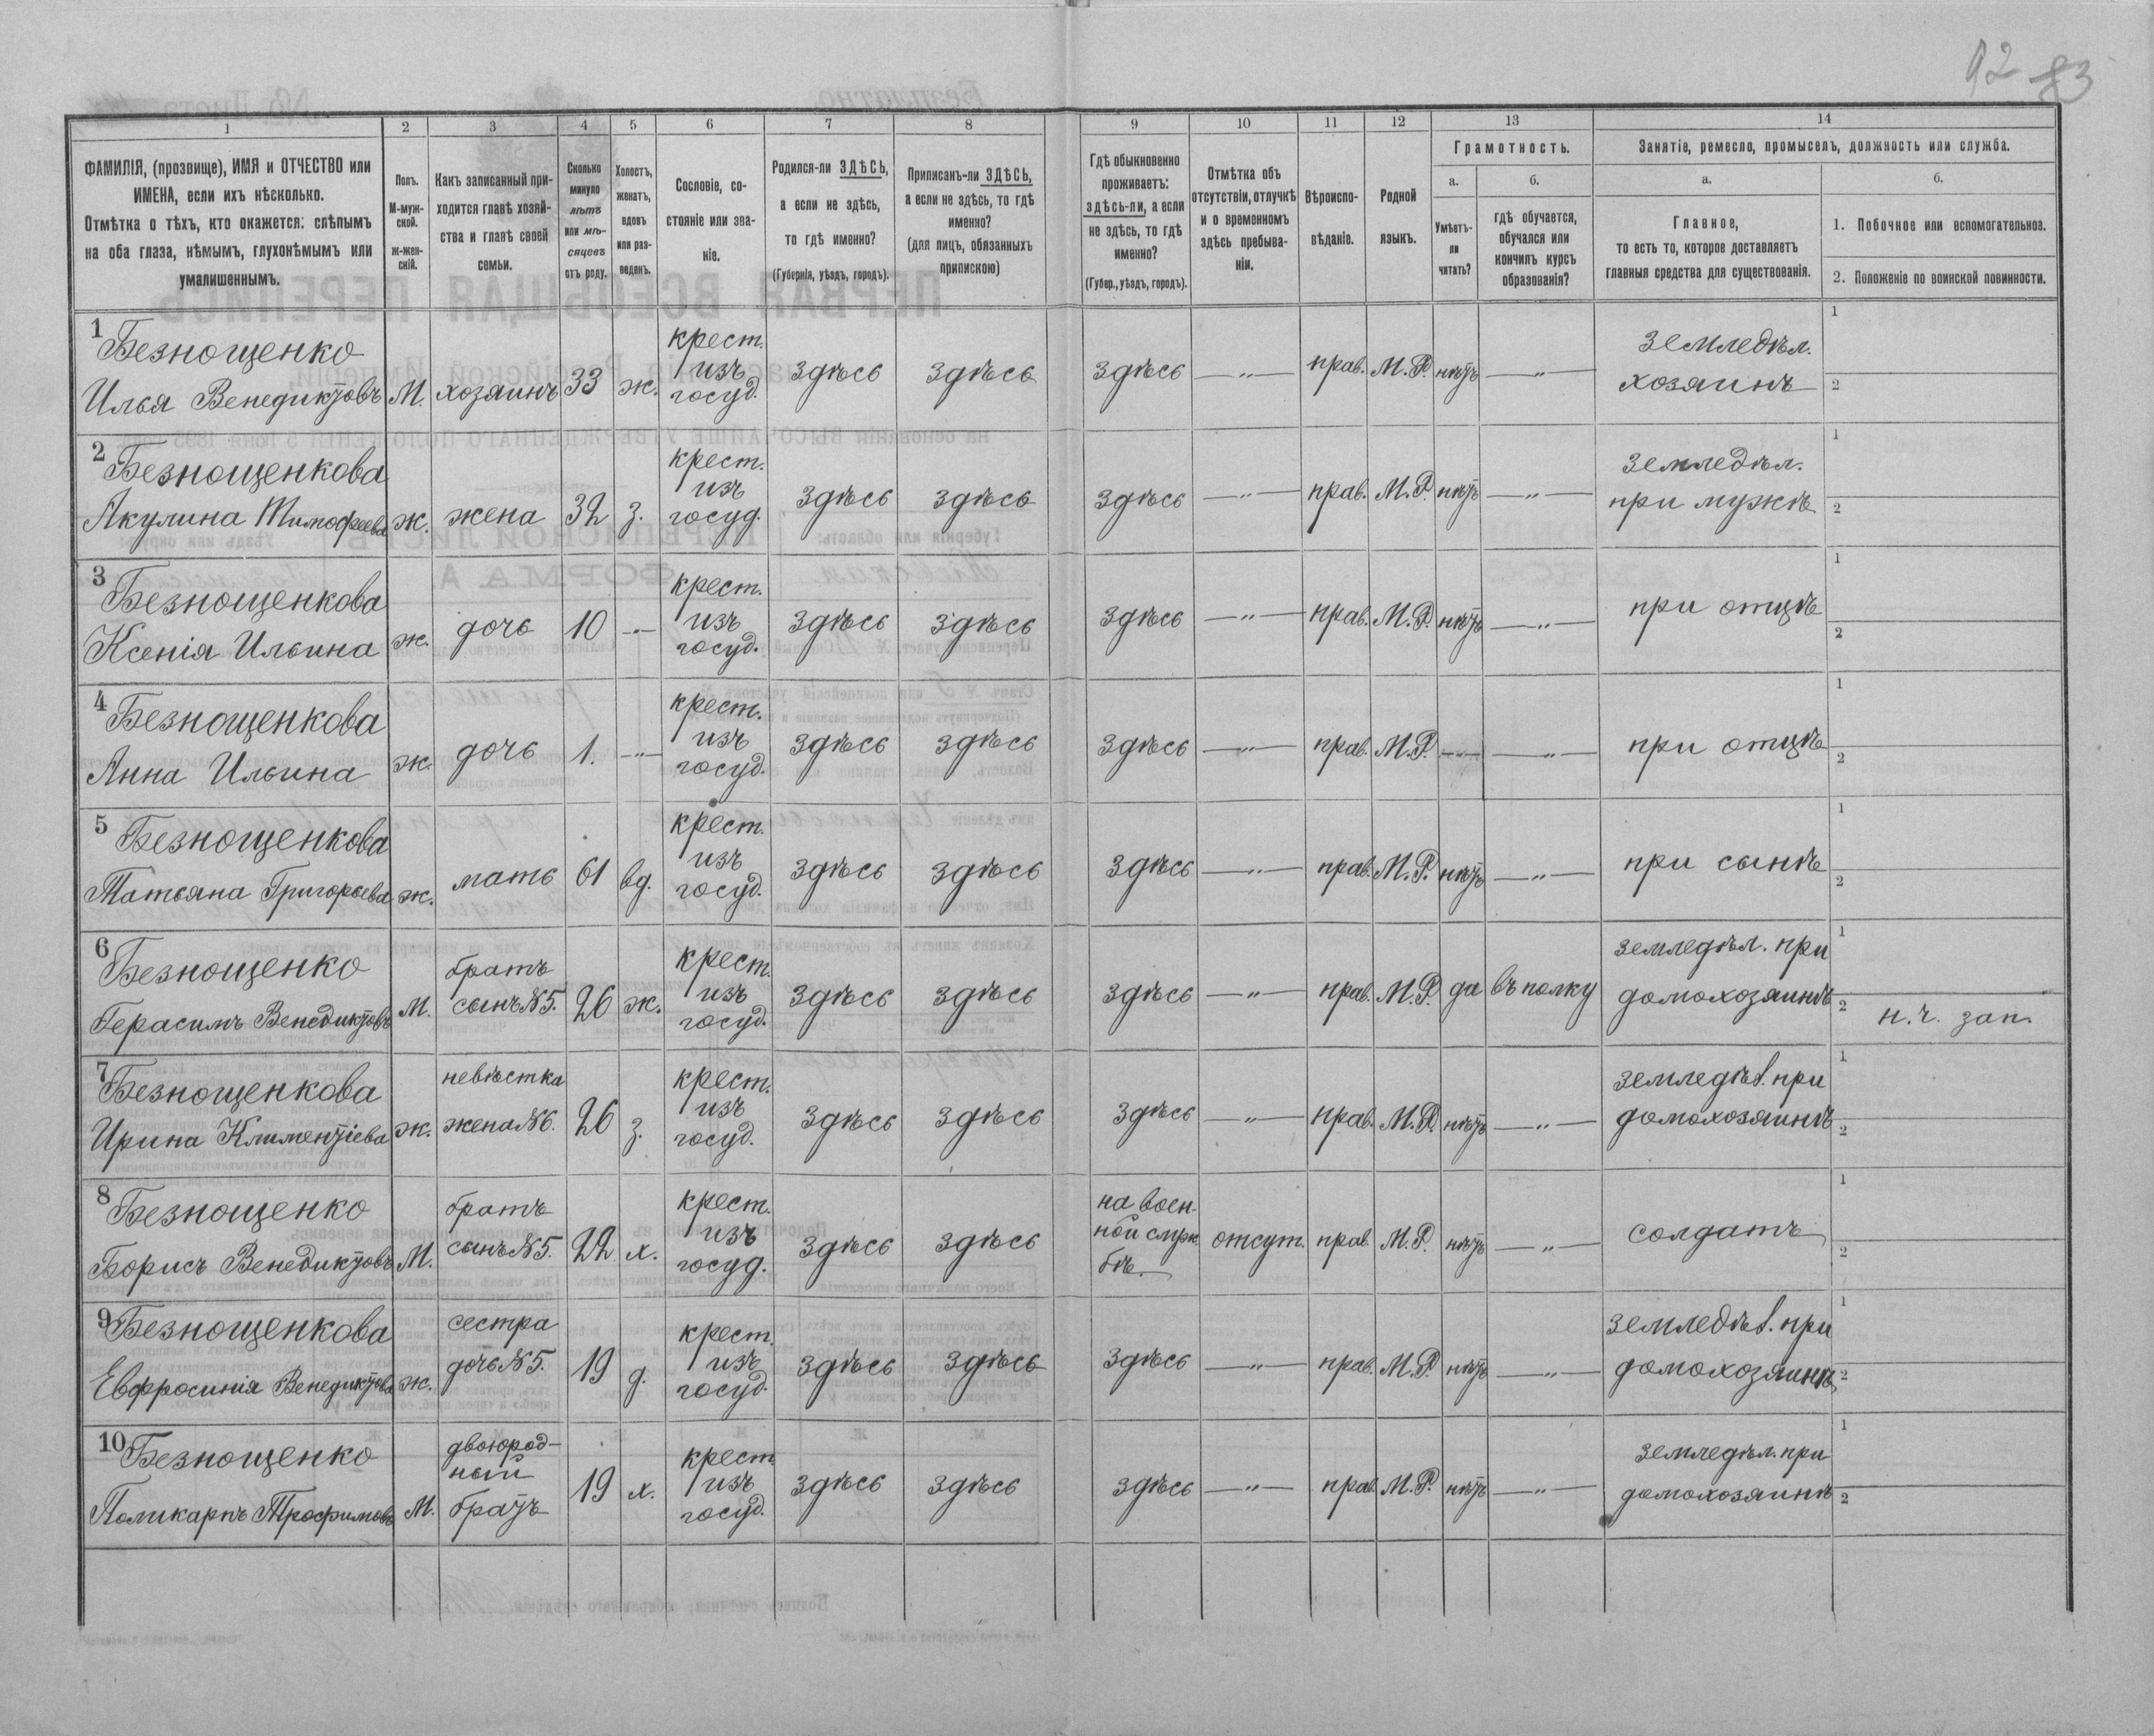 92 83
1 2 3 4 5 6 7 8 9 10 11 12 13 14
ФАМИЛІЯ, (прозвище), ИМЯ и ОТЧЕСТВО или
ИМЕНА, если ихъ нѣсколько.
Отмѣтка о тѣхъ, кто окажется: слѣпымъ
на оба глаза, нѣмымъ, глухонѣмымъ или
умалишеннымъ.
Полъ.
М-муж-
ской.
ж-жен-
скій.
Какъ записанный при-
ходится главѣ хозяй-
ства и главѣ своей
семьи.
Сколько
минуло
лѣтъ
или мѣ-
сяцевъ
отъ роду.
Холостъ,
женатъ,
вдовъ
или раз-
веденъ.
Сословіе, со-
стояніе или зва-
ніе.
Родился-ли ЗДѢСЬ,
а если не здѣсь,
то гдѣ именно?
(Губернія, уѣздъ, городъ).
Приписанъ-ли ЗДѢСЬ,
а если не здѣсь, то гдѣ
именно?
(для лицъ, обязанныхъ
припискою)
Гдѣ обыкновенно
проживаетъ:
здѣсь-ли, а если
не здѣсь, то гдѣ
именно?
(Губер., уѣздъ, городъ).
Отмѣтка объ
отсутствіи, отлучкѣ
и о временномъ
здѣсь пребыва-
ніи.
Вѣроиспо-
вѣданіе.
Родной
языкъ.
Грамотность.
а.
Умѣетъ-
ли
читать?
б.
гдѣ обучается,
обучался или
кончилъ курсъ
образованія?
Занятіе, ремесло, промыселъ, должность или служба.
а.
Главное,
то есть то, которое доставляетъ
главныя средства для существованія.
б.
1. Побочное или вспомогательное.
2. Положеніе по воинской повинности.
1 Безнощенко
Илья Венедиктовъ
М.
хозяинъ
33
ж.
крест.
изъ
госуд.
здѣсь
здѣсь
здѣсь
—„—
прав.
М.Р.
нѣтъ
—„—
земледѣл.
хозяинъ
1
2
2 Безнощенкова
Акулина Тимофеева
ж.
жена
32
з.
крест.
изъ
госуд.
здѣсь
здѣсь
здѣсь
—„—
прав.
М.Р.
нѣтъ
—„—
земледѣл.
при мужѣ
1
2
3 Безнощенкова
Ксенія Ильина
ж.
дочь
10
—„—
крест.
изъ
госуд.
здѣсь
здѣсь
здѣсь
—„—
прав.
М.Р.
нѣтъ
—„—
при отцѣ
1
2
4 Безнощенкова
Анна Ильина
ж.
дочь
1.
—„—
крест.
изъ
госуд.
здѣсь
здѣсь
здѣсь
—„—
прав.
М.Р.
—„—
—„—
при отцѣ
1
2
5 Безнощенкова
Татьяна Григорьева
ж.
мать
61
вд.
крест.
изъ
госуд.
здѣсь
здѣсь
здѣсь
—„—
прав.
М.Р.
нѣтъ
—„—
при сынѣ
1
2
6 Безнощенко
Герасимъ Венедиктовъ
М.
братъ
сынъ №5.
26
ж.
крест.
изъ
госуд.
здѣсь
здѣсь
здѣсь
—„—
прав.
М.Р.
да
въ полку
земледѣл. при
домохозяинѣ
1
2 н.ч. зап.
7 Безнощенкова
Ирина Климентіева
ж.
невѣстка
жена №6.
26
з.
крест.
изъ
госуд.
здѣсь
здѣсь
здѣсь
—„—
прав.
М.Р.
нѣтъ
—„—
земледѣл. при
домохозяинѣ
1
2
8 Безнощенко
Борисъ Венедиктовъ
М.
братъ
сынъ №5.
22
х.
крест.
изъ
госуд.
здѣсь
здѣсь
на воен-
ной служ-
бѣ.
отсут.
прав.
М.Р.
нѣтъ
—„—
солдатъ
1
2
9 Безнощенкова
Евфросинія Венедиктова
ж.
сестра
дочь №5.
19
д.
крест.
изъ
госуд.
здѣсь
здѣсь
здѣсь
—„—
прав.
М.Р.
нѣтъ
—„—
земледѣл. при
домохозяинѣ
1
2
10 Безнощенко
Поликарпъ Трофимовъ
М.
двоюрод-
ный
братъ
19
х.
крест.
изъ
госуд.
здѣсь
здѣсь
здѣсь
—„—
прав.
М.Р.
нѣтъ
—„—
земледѣл. при
домохозяинѣ
1
2